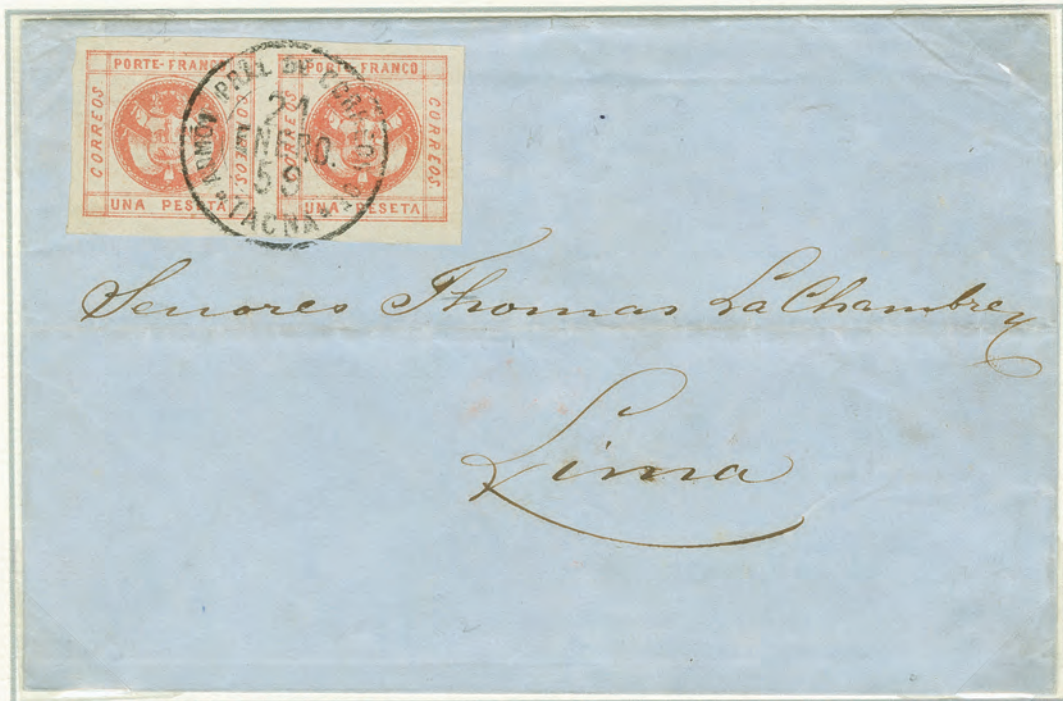 PORTE-FRANCO
CORREOS
CORREOS
UNA PESETA
PORTE FRANCO
CORREOS
CORREOS
UNA PESETA
ADMON PRAL DE
21
ENERO.
TACNA
Senores Thomas LaChambre y
Lima